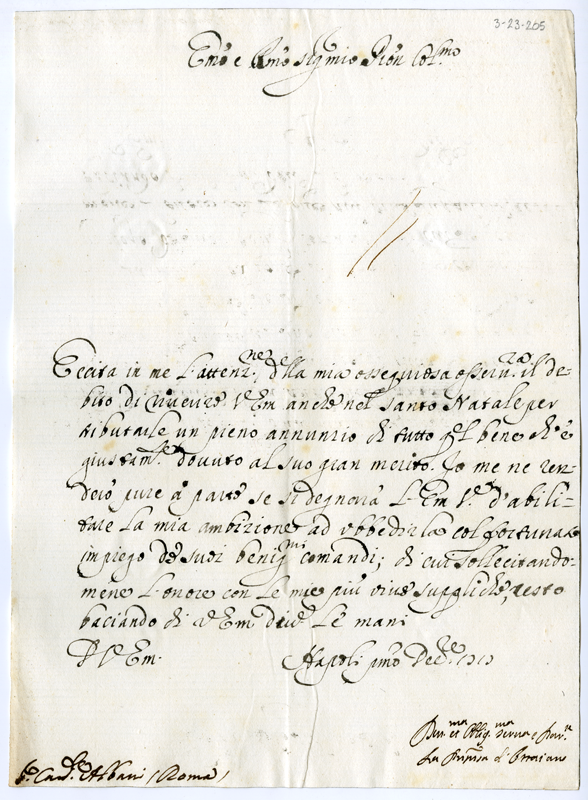 3-23-205
Em̃o e Rm̃o Sig mio Pron Col.mo
Eccita in me l'attenz.ne della mia ossequiosa osseru.za il de-
bito di riuerire V Em anche nel Santo Natale per
tributarle un pieno annunzio di tutto q̃l bene ch'è
giustam.te dovuto al suo gran merito. Io me ne ren-
derò pure à parte se si degnerà l'Em V.ra d'abili-
tare la mia ambizione ad vbbedirla col fortunato
impiego de suoi benig.mi comandi; di cui sollecitando-
mene l'onore con le mie più viue suppliche, resto
baciando di V Em diue le mani
D V Em.
Napoli pm̃o Dec.re
Deu.ma et Oblig.ma serua
La
S.r Card.le Albani (Roma)